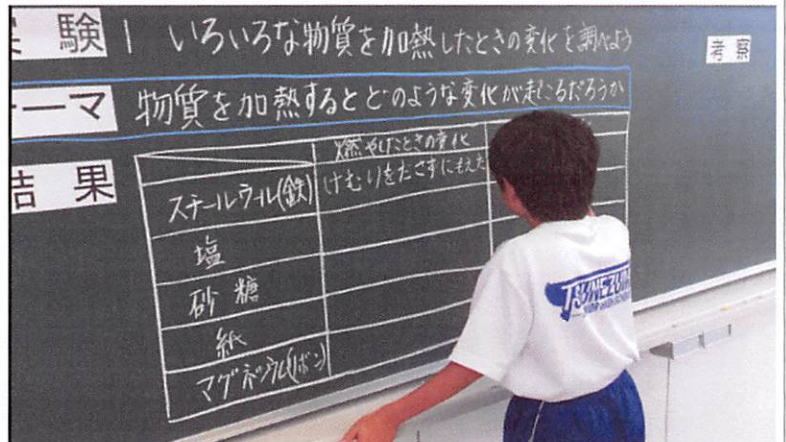 実験 1 いろいろな物質を加熱したときの変化を調べよう
考察
テーマ 物質を加熱するとどのような変化が起こるだろうか
結果
燃やしたときの変化
スチールウール(鉄) けむりをださずにもえた
塩
砂糖
紙
マグネシウム(リボン)